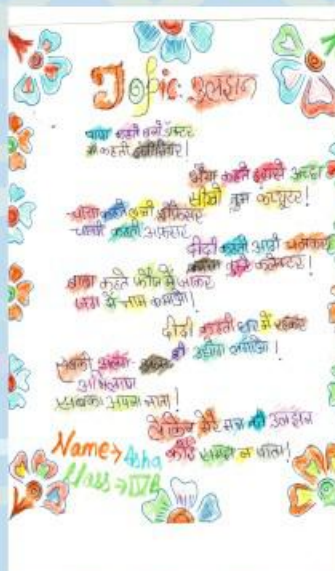 Topic: उलझन
पापा कहते बनो डॉक्टर
माँ कहती इंजीनियर!
भैया कहते इससे अच्छा
सीखो तुम कंप्यूटर!
चाचा कहते बनो प्रोफेसर
चाची कहती अफसर
दीदी कहती आगे चलकर
बनना तुम्हें कलेक्टर!
बाबा कहते फौज में जाकर
जग में नाम कमाओ!
दीदी कहती घर में रहकर
ही उद्योग लगाओ!
सबकी अलग-अलग
अभिलाषा
सबका अपना नाता!
लेकिन मेरे मन की उलझन
कोई समझ न पाता!
Name→ Asha
Class→ IV B